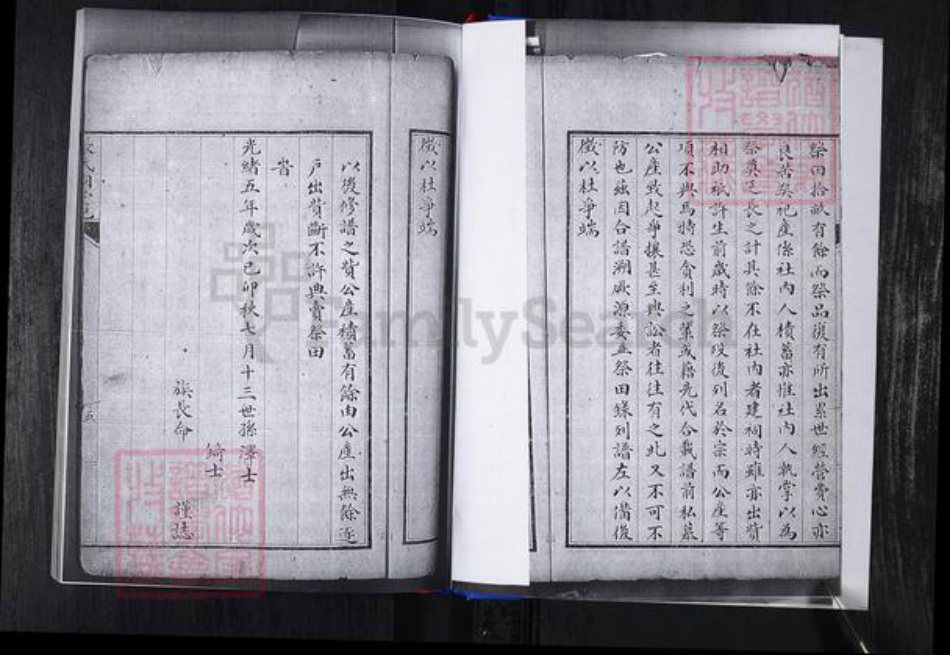 祭田拾畝有餘而祭品復有所出累世經營費心亦
良苦矣祀産係社内人積蓄亦惟社内人執掌以為
祭奠久長之計其餘不在社内者建祠時雖亦出貲
相助祇許生前歲時以祭歿後列名於宗而公産等
項不與焉特恐貪利之輩或藉先代合載譜前私慕
公産致起爭攘甚至興訟者往往有之此又不可不
防也兹因合譜溯厥源委並祭田錄列譜左以備後
徵以杜爭端
徵以杜爭端
以後修譜之貲公産積蓄有餘由公産出無餘逐
户出貲斷不許典賣祭田
旹
光緒五年歲次己卯秋七月十三世孫澤士
鑄士
族長命
謹誌
五
FamilySearch